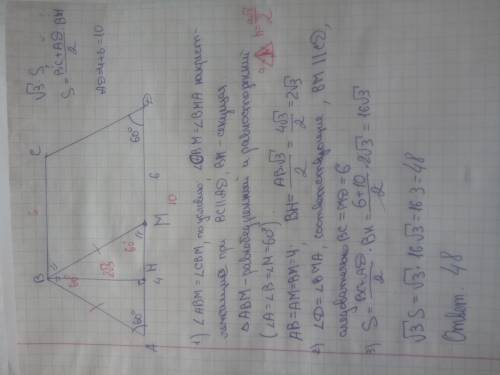 √3 S
S = (BC + AD)/2 · BH
AD = 4 + 6 = 10
B
C
6
60°
2√3
60°
60°
60°
6
10
A
4
H
M
D
1) ∠ABM = ∠CBM, по условию, ∠CBM = ∠BMA накрест-
лежащие при BC ∥ AD, BM - секущая
△ABM - равнобедренный и равносторонний
(∠A = ∠B = ∠M = 60°)
h = a√3/2
AB = AM = BM = 4. BH = AB·√3/2 = 4√3/2 = 2√3
2) ∠D = ∠BMA, соответствующие, BM ∥ CD,
следовательно BC = MD = 6
3) S = BC+AD/2 · BH = 6+10/2 · 2√3 = 16√3
√3 S = √3 · 16√3 = 16·3 = 48
Ответ. 48